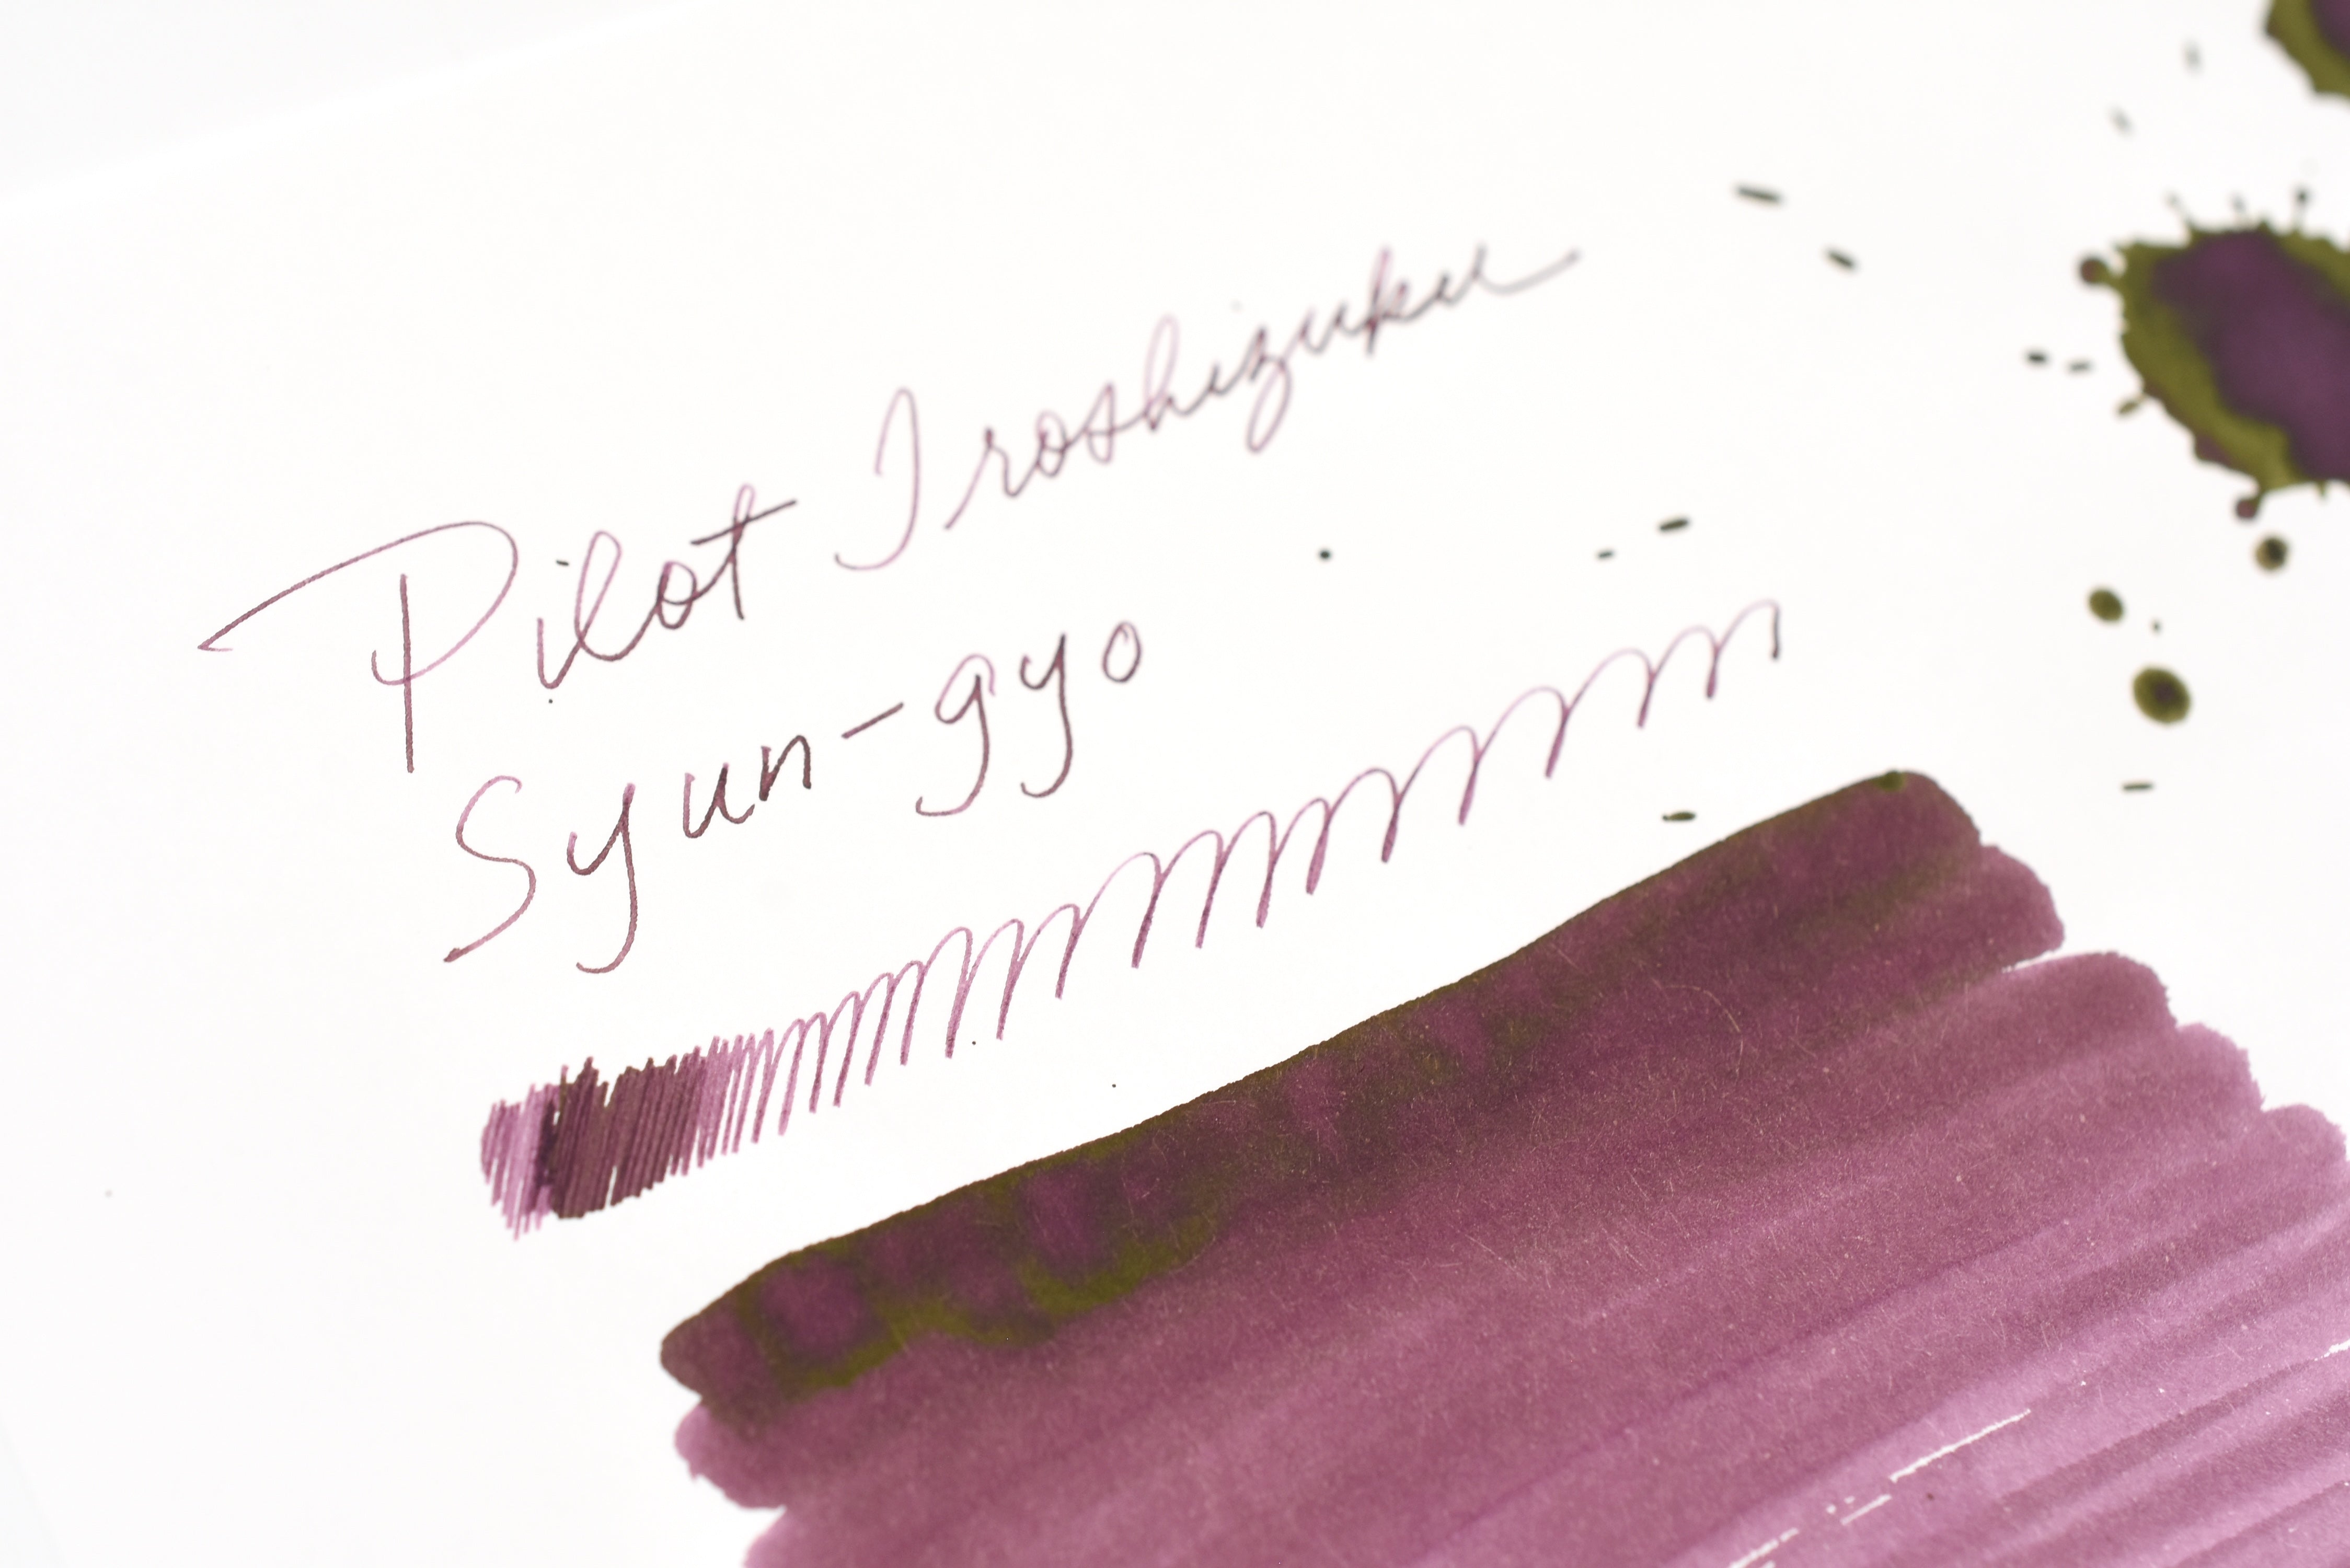 Pilot Iroshizuku
Syun-gyo